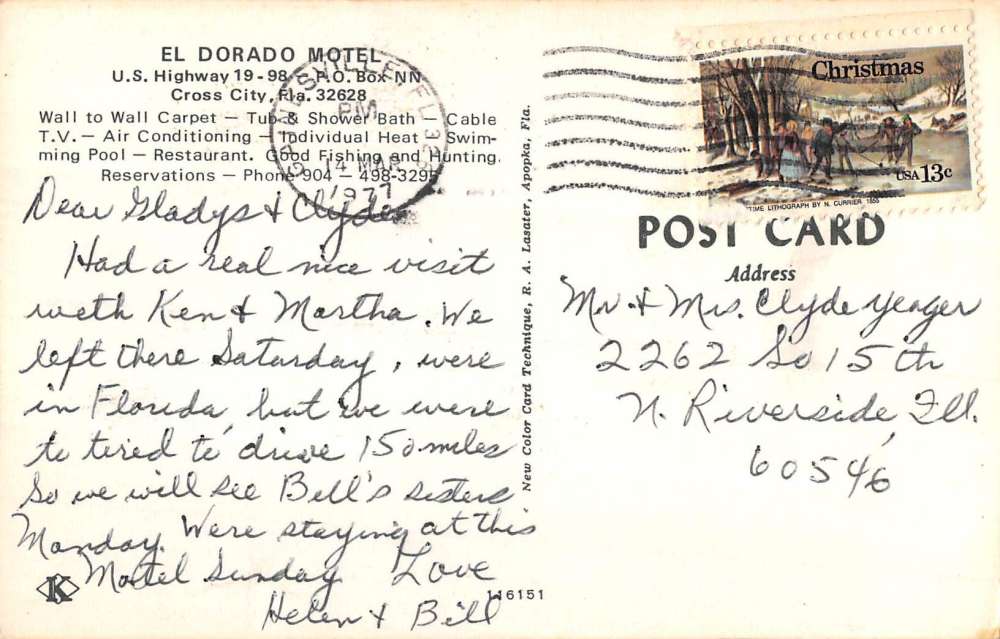 EL DORADO MOTEL
U.S. Highway 19-98 - P.O. Box NN
Cross City, Fla. 32628
Wall to Wall Carpet — Tub & Shower Bath — Cable
T.V. — Air Conditioning — Individual Heat — Swim-
ming Pool — Restaurant. Good Fishing and Hunting.
Reservations — Phone 904 — 498-3295
GAINESVILLE, FL
PM
14 MAR
1977
Dear Gladys & Clyde
Had a real nice visit
with Ken & Martha. We
left there Saturday, were
in Florida, but we were
to tired to drive 150 miles
So we will see Bill's sisters
Monday. Were staying at this
Motel Sunday Love
Helen & Bill
K
116151
New Color Card Technique, R. A. Lasater, Apopka, Fla.
Christmas
USA 13c
TIME LITHOGRAPH BY N. CURRIER 1855
POST CARD
Address
Mr. & Mrs. Clyde Yeager
2262 So 15th
N. Riverside, Ill.
60546